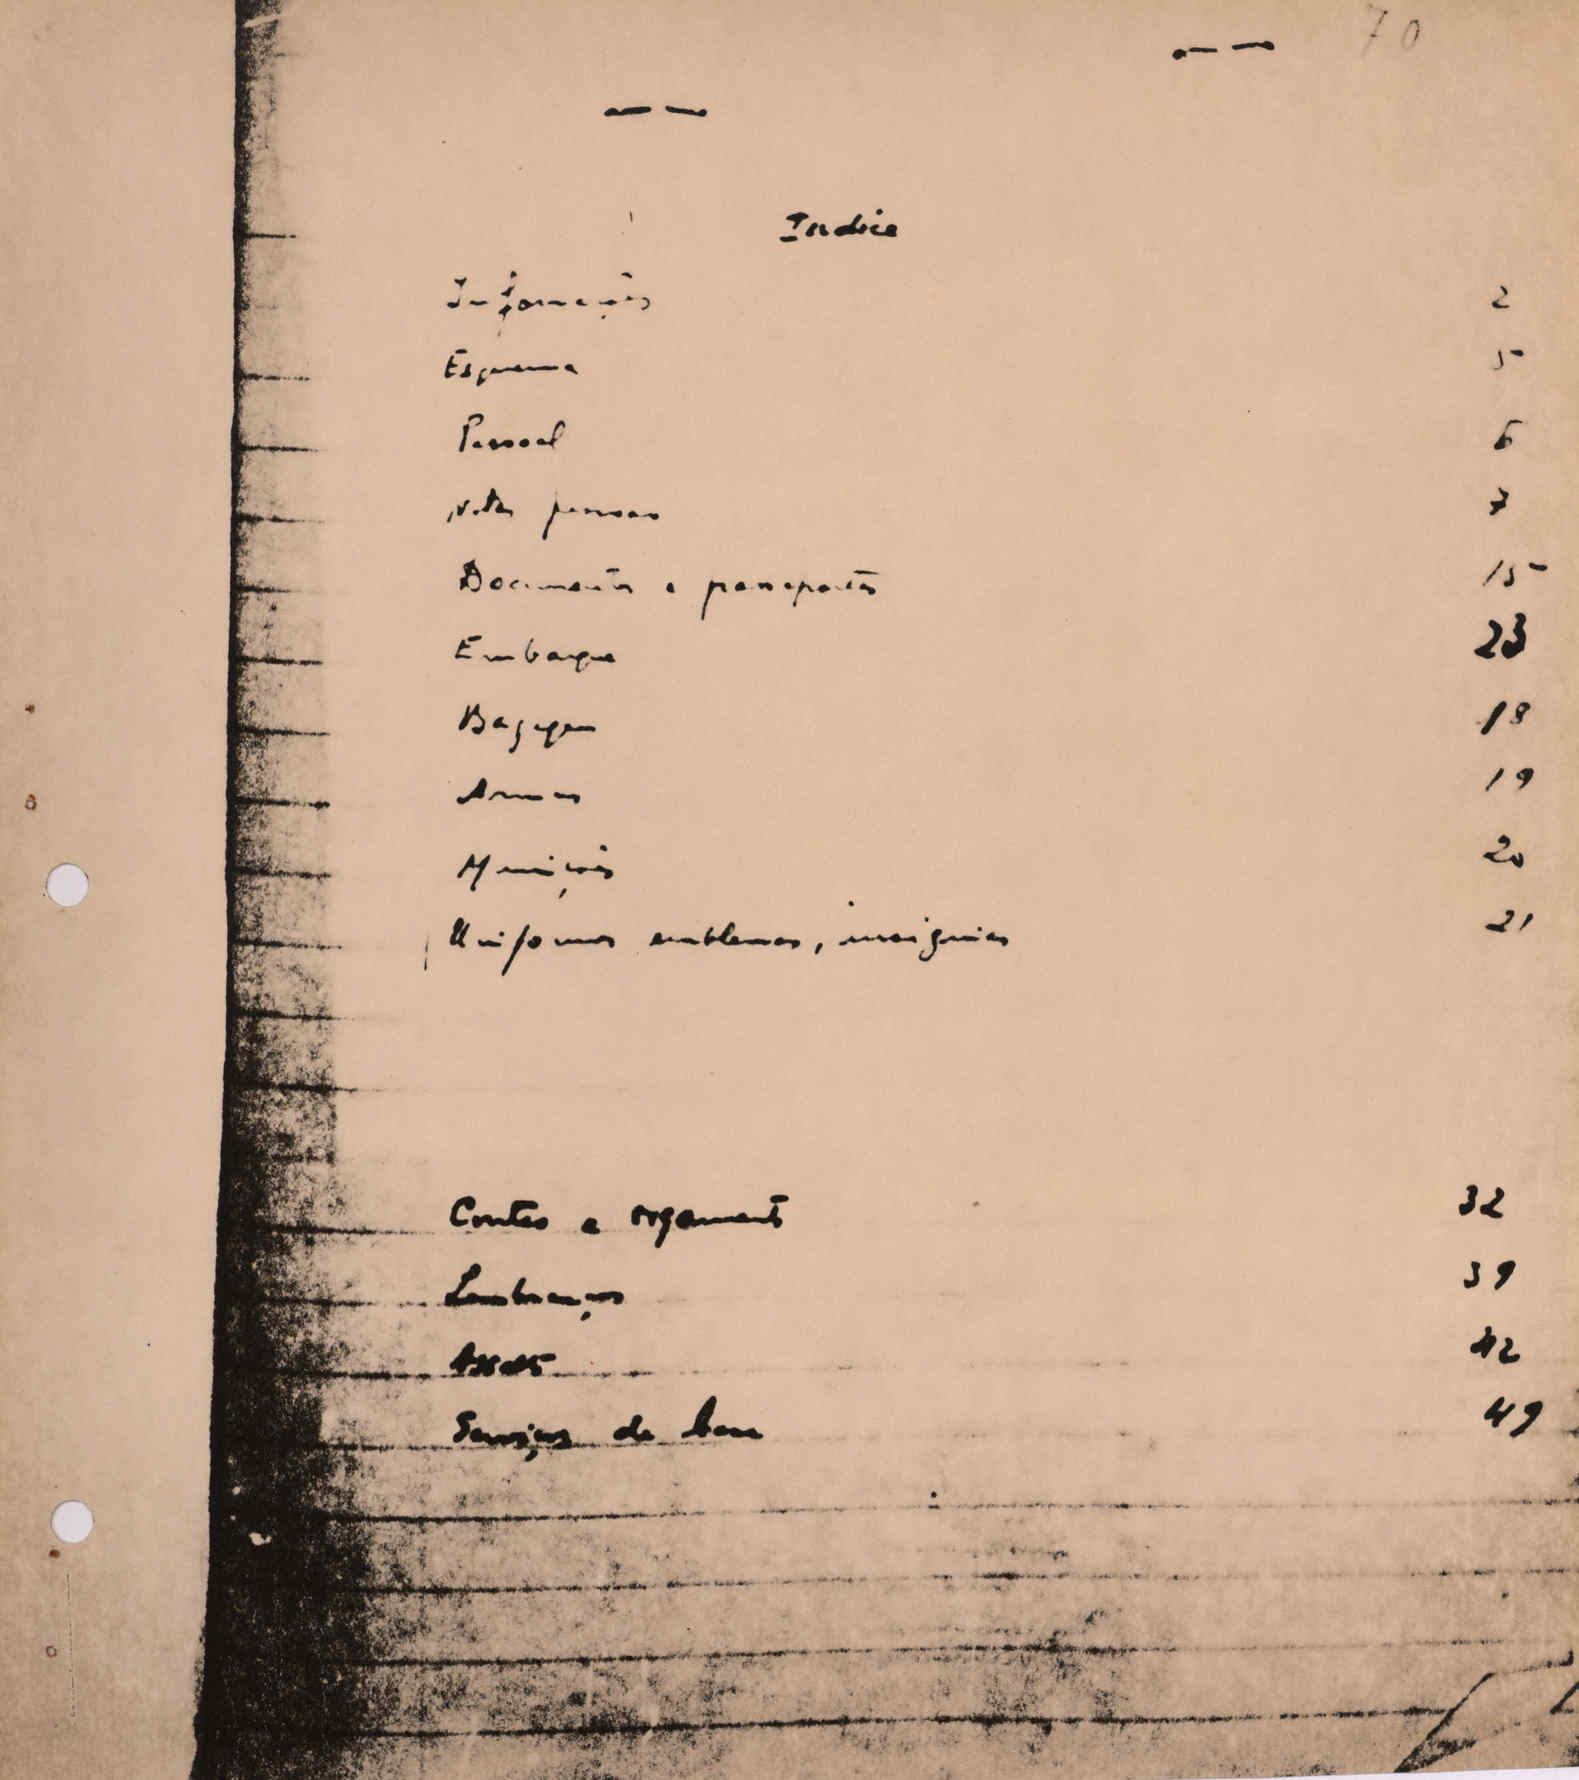 70
Indice
Informações 2
Esquema 5
Pessoal 6
Notas pessoas 7
Documentos e passaportes 15
Embarque 23
Bagagem 18
Armas 19
Munições 20
Uniformes emblemas, insignias 21
Contas e orçamento 32
Lembranças 39
42
Serviços de base 49